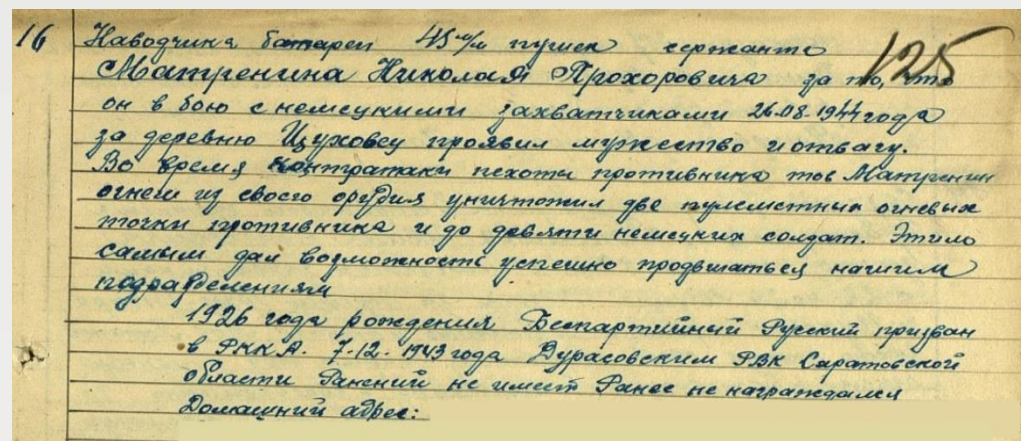 16 Наводчика батареи 45 м/м пушек сержанта
125
Матренина Николая Прохоровича за то, что
он в бою с немецкими захватчиками 26.08.1944 года
за деревню Цуховец проявил мужество и отвагу.
Во время контратаки пехоты противника тов Матренин
огнем из своего орудия уничтожил две пулеметных огневых
точки противника и до девяти немецких солдат. Этило
самым дал возможность успешно продвигаться нашим
подразделениям
1926 года рождения Беспартийный Русский призван
в РККА. 7.12.1943 года Дурасовским РВК Саратовской
области Ранений не имеет Ранее не награждался
Домашний адрес: